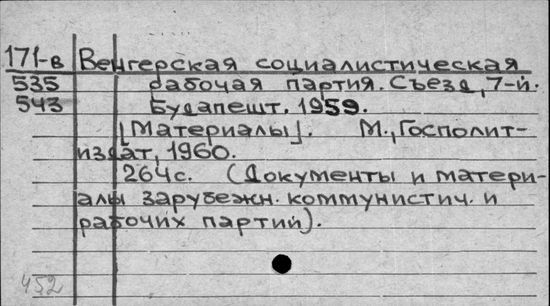 171-в Венгерская социалистическая
535 рабочая партия. Съезд, 7-й.
543 Будапешт. 1959.
[Материалы]. М., Госполит-
издат, 1960.
264с. (Документы и матери-
алы зарубежн. коммунистич. и
рабочих партий).
452